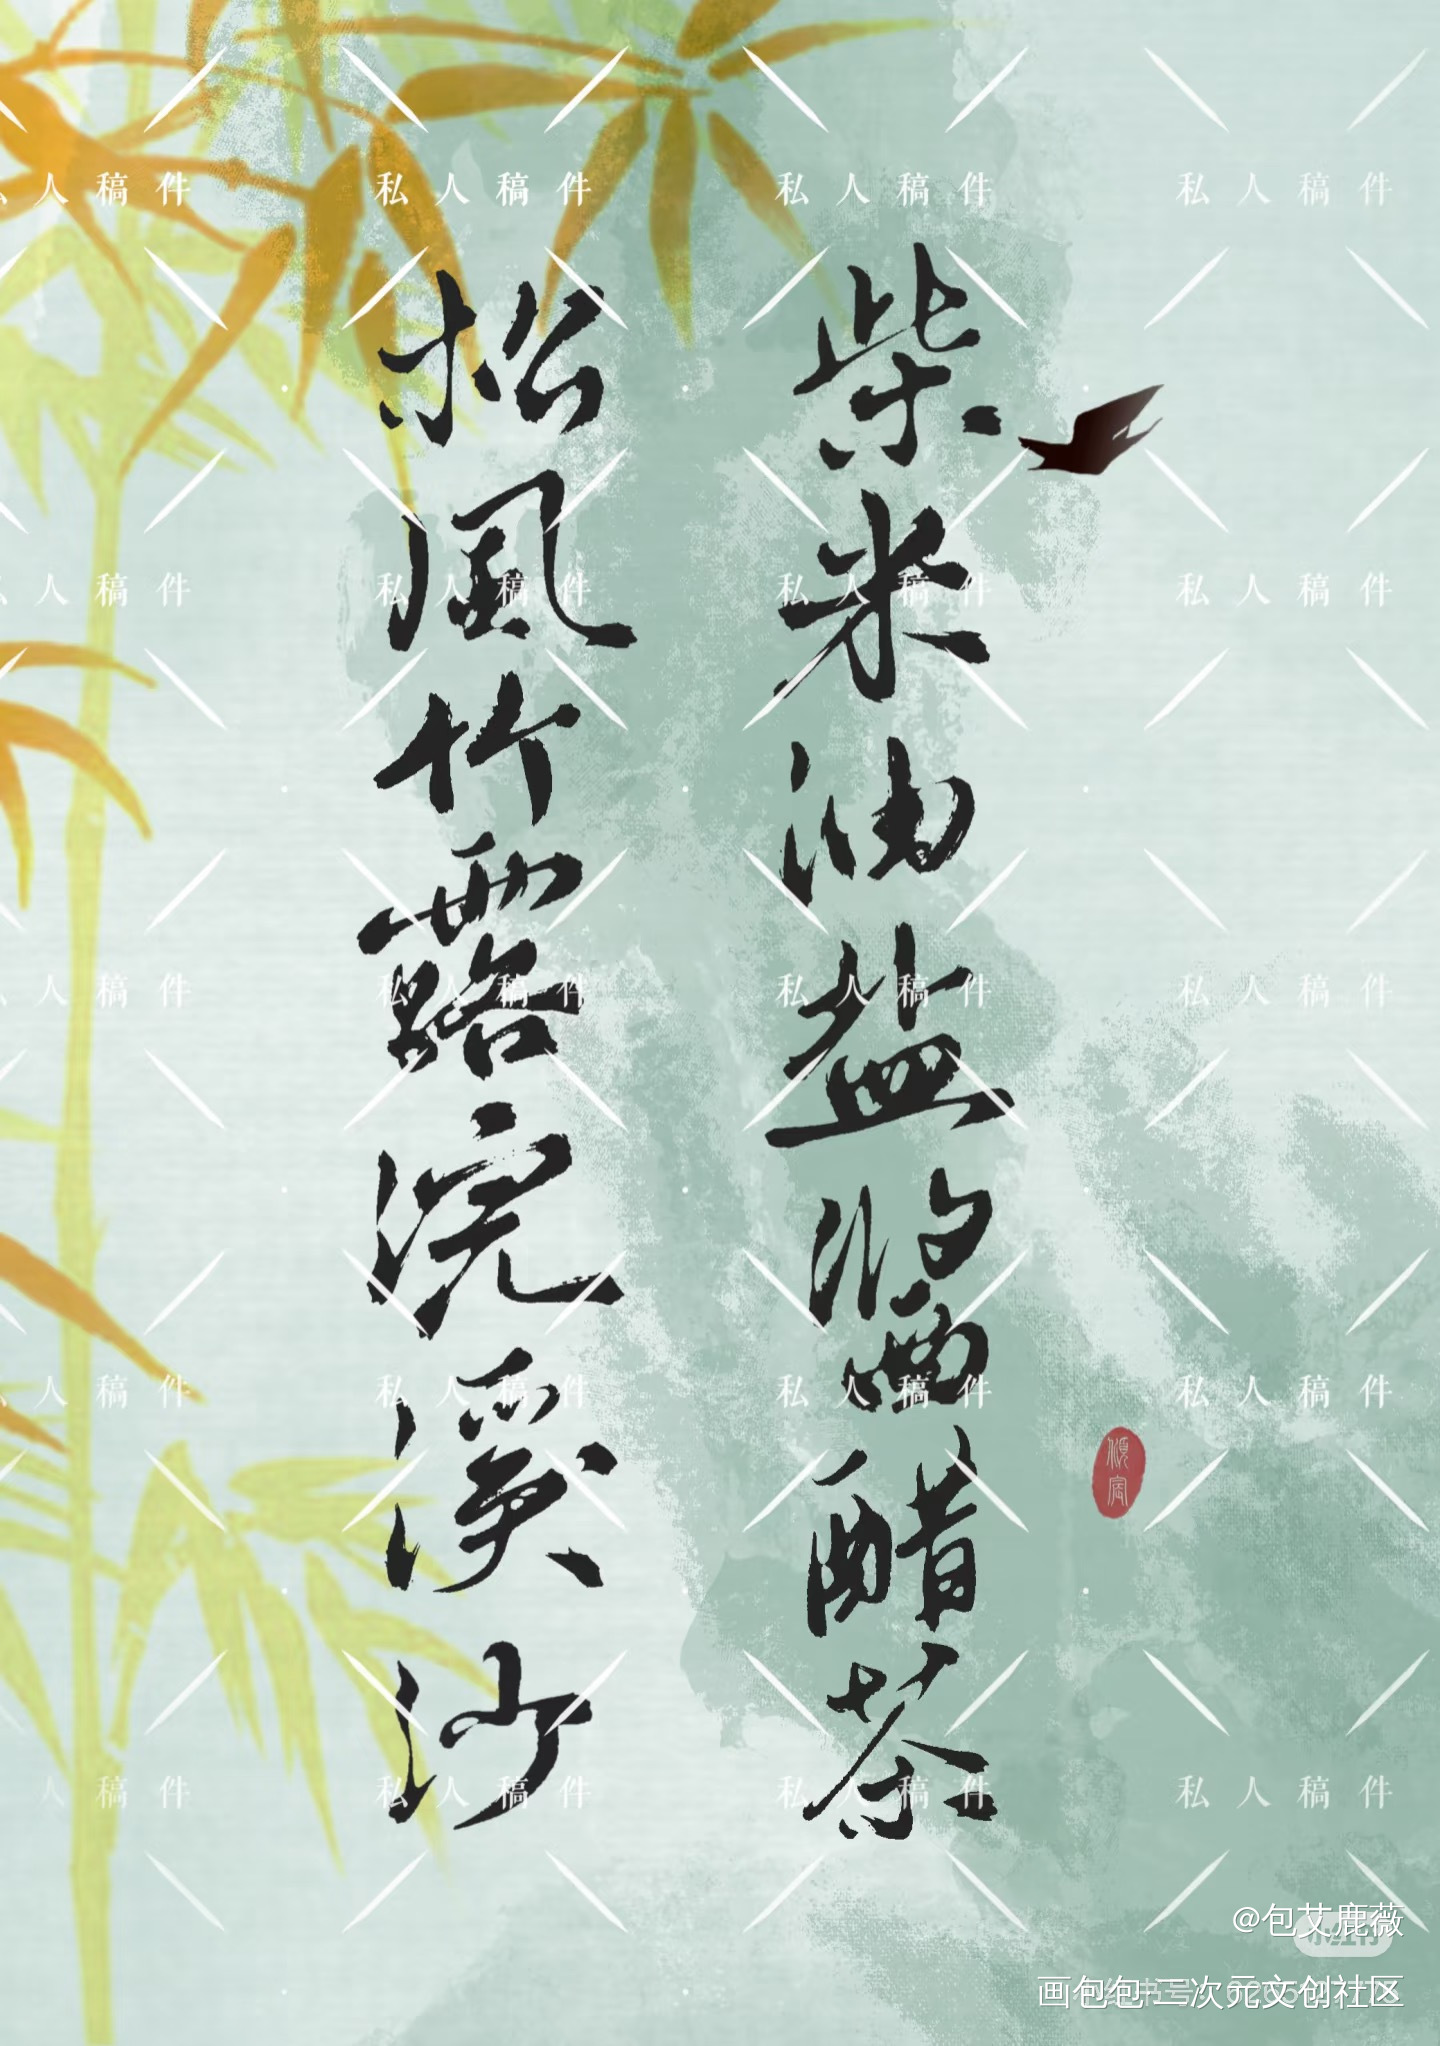 柴米油盐醬醋茶
松風竹露浣溪沙
私人稿件 私人稿件 私人稿件 私人稿件
私人稿件 私人稿件 私人稿件 私人稿件
私人稿件 私人稿件 私人稿件 私人稿件
私人稿件 私人稿件 私人稿件 私人稿件
人稿件 私人稿件 私人稿件 私人稿件
@包艾鹿薇
小红书
画包包二次元文创社区